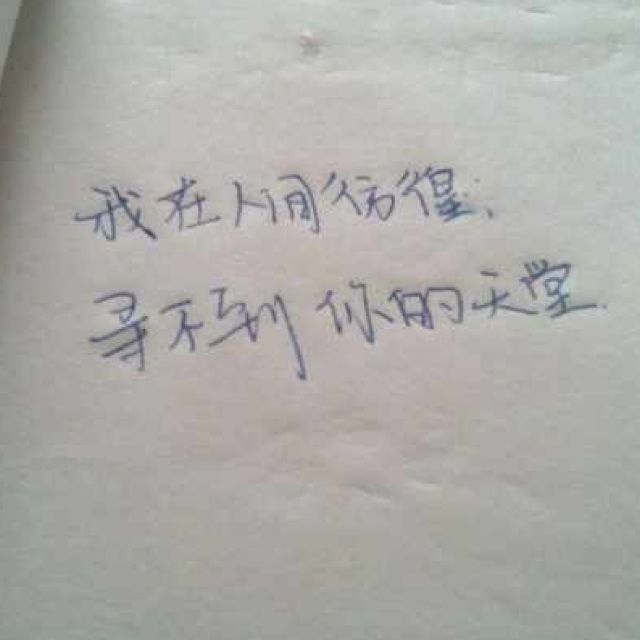 我在人间彷徨，
寻不到你的天堂.